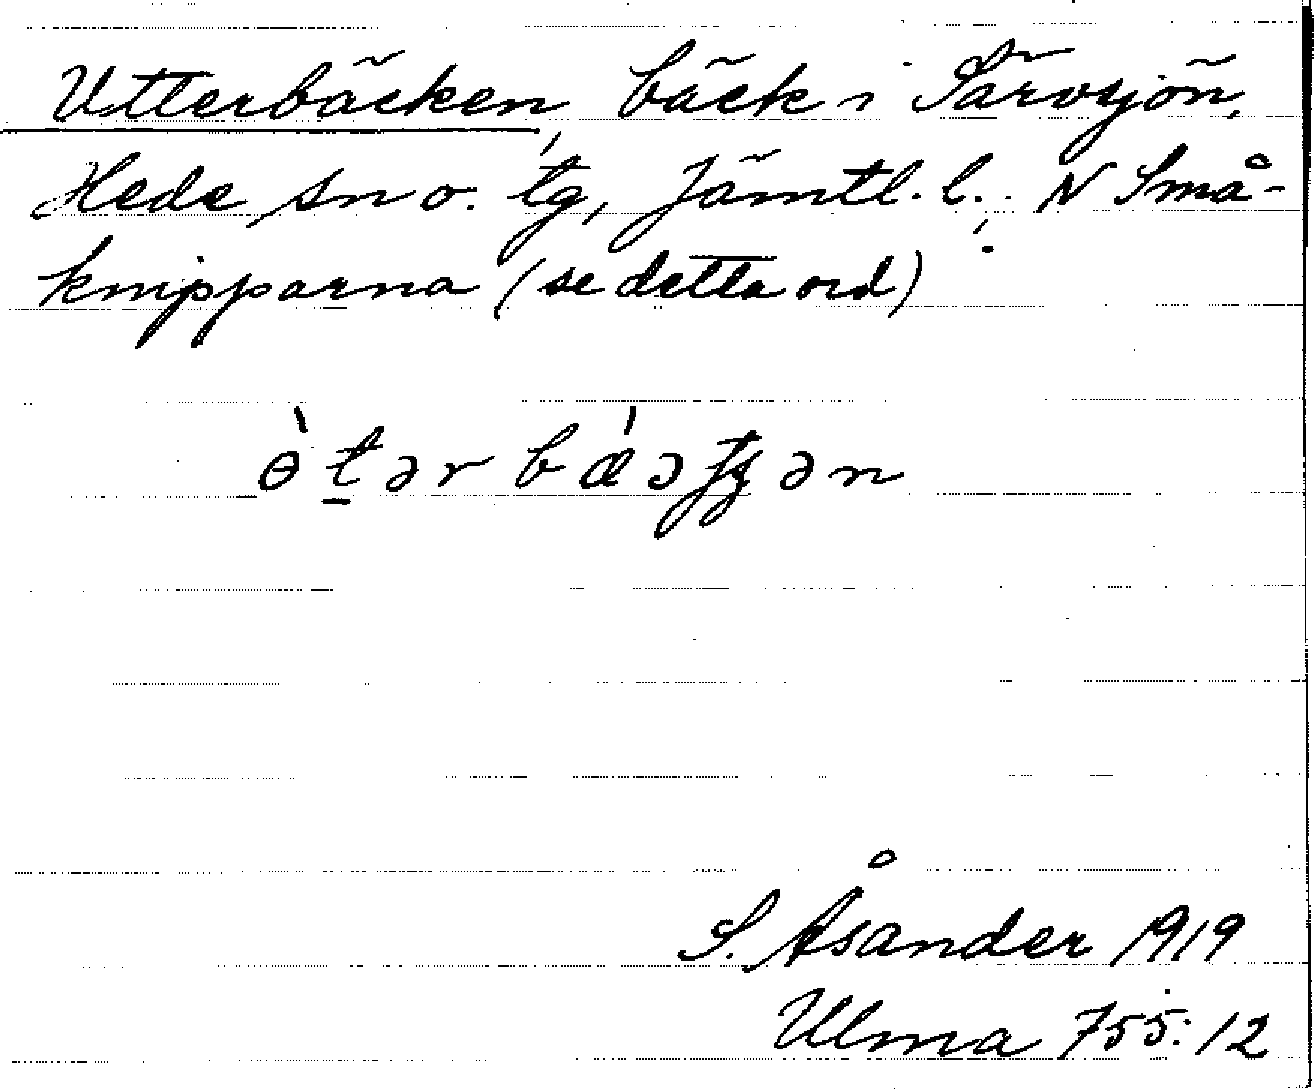 Utterbäcken, bäck i Särvsjön,
Hede sn o. tg, Jämtl. l.; N Små-
knipparna (se detta ord)
S. Åsander 1919
Ulma 755:12